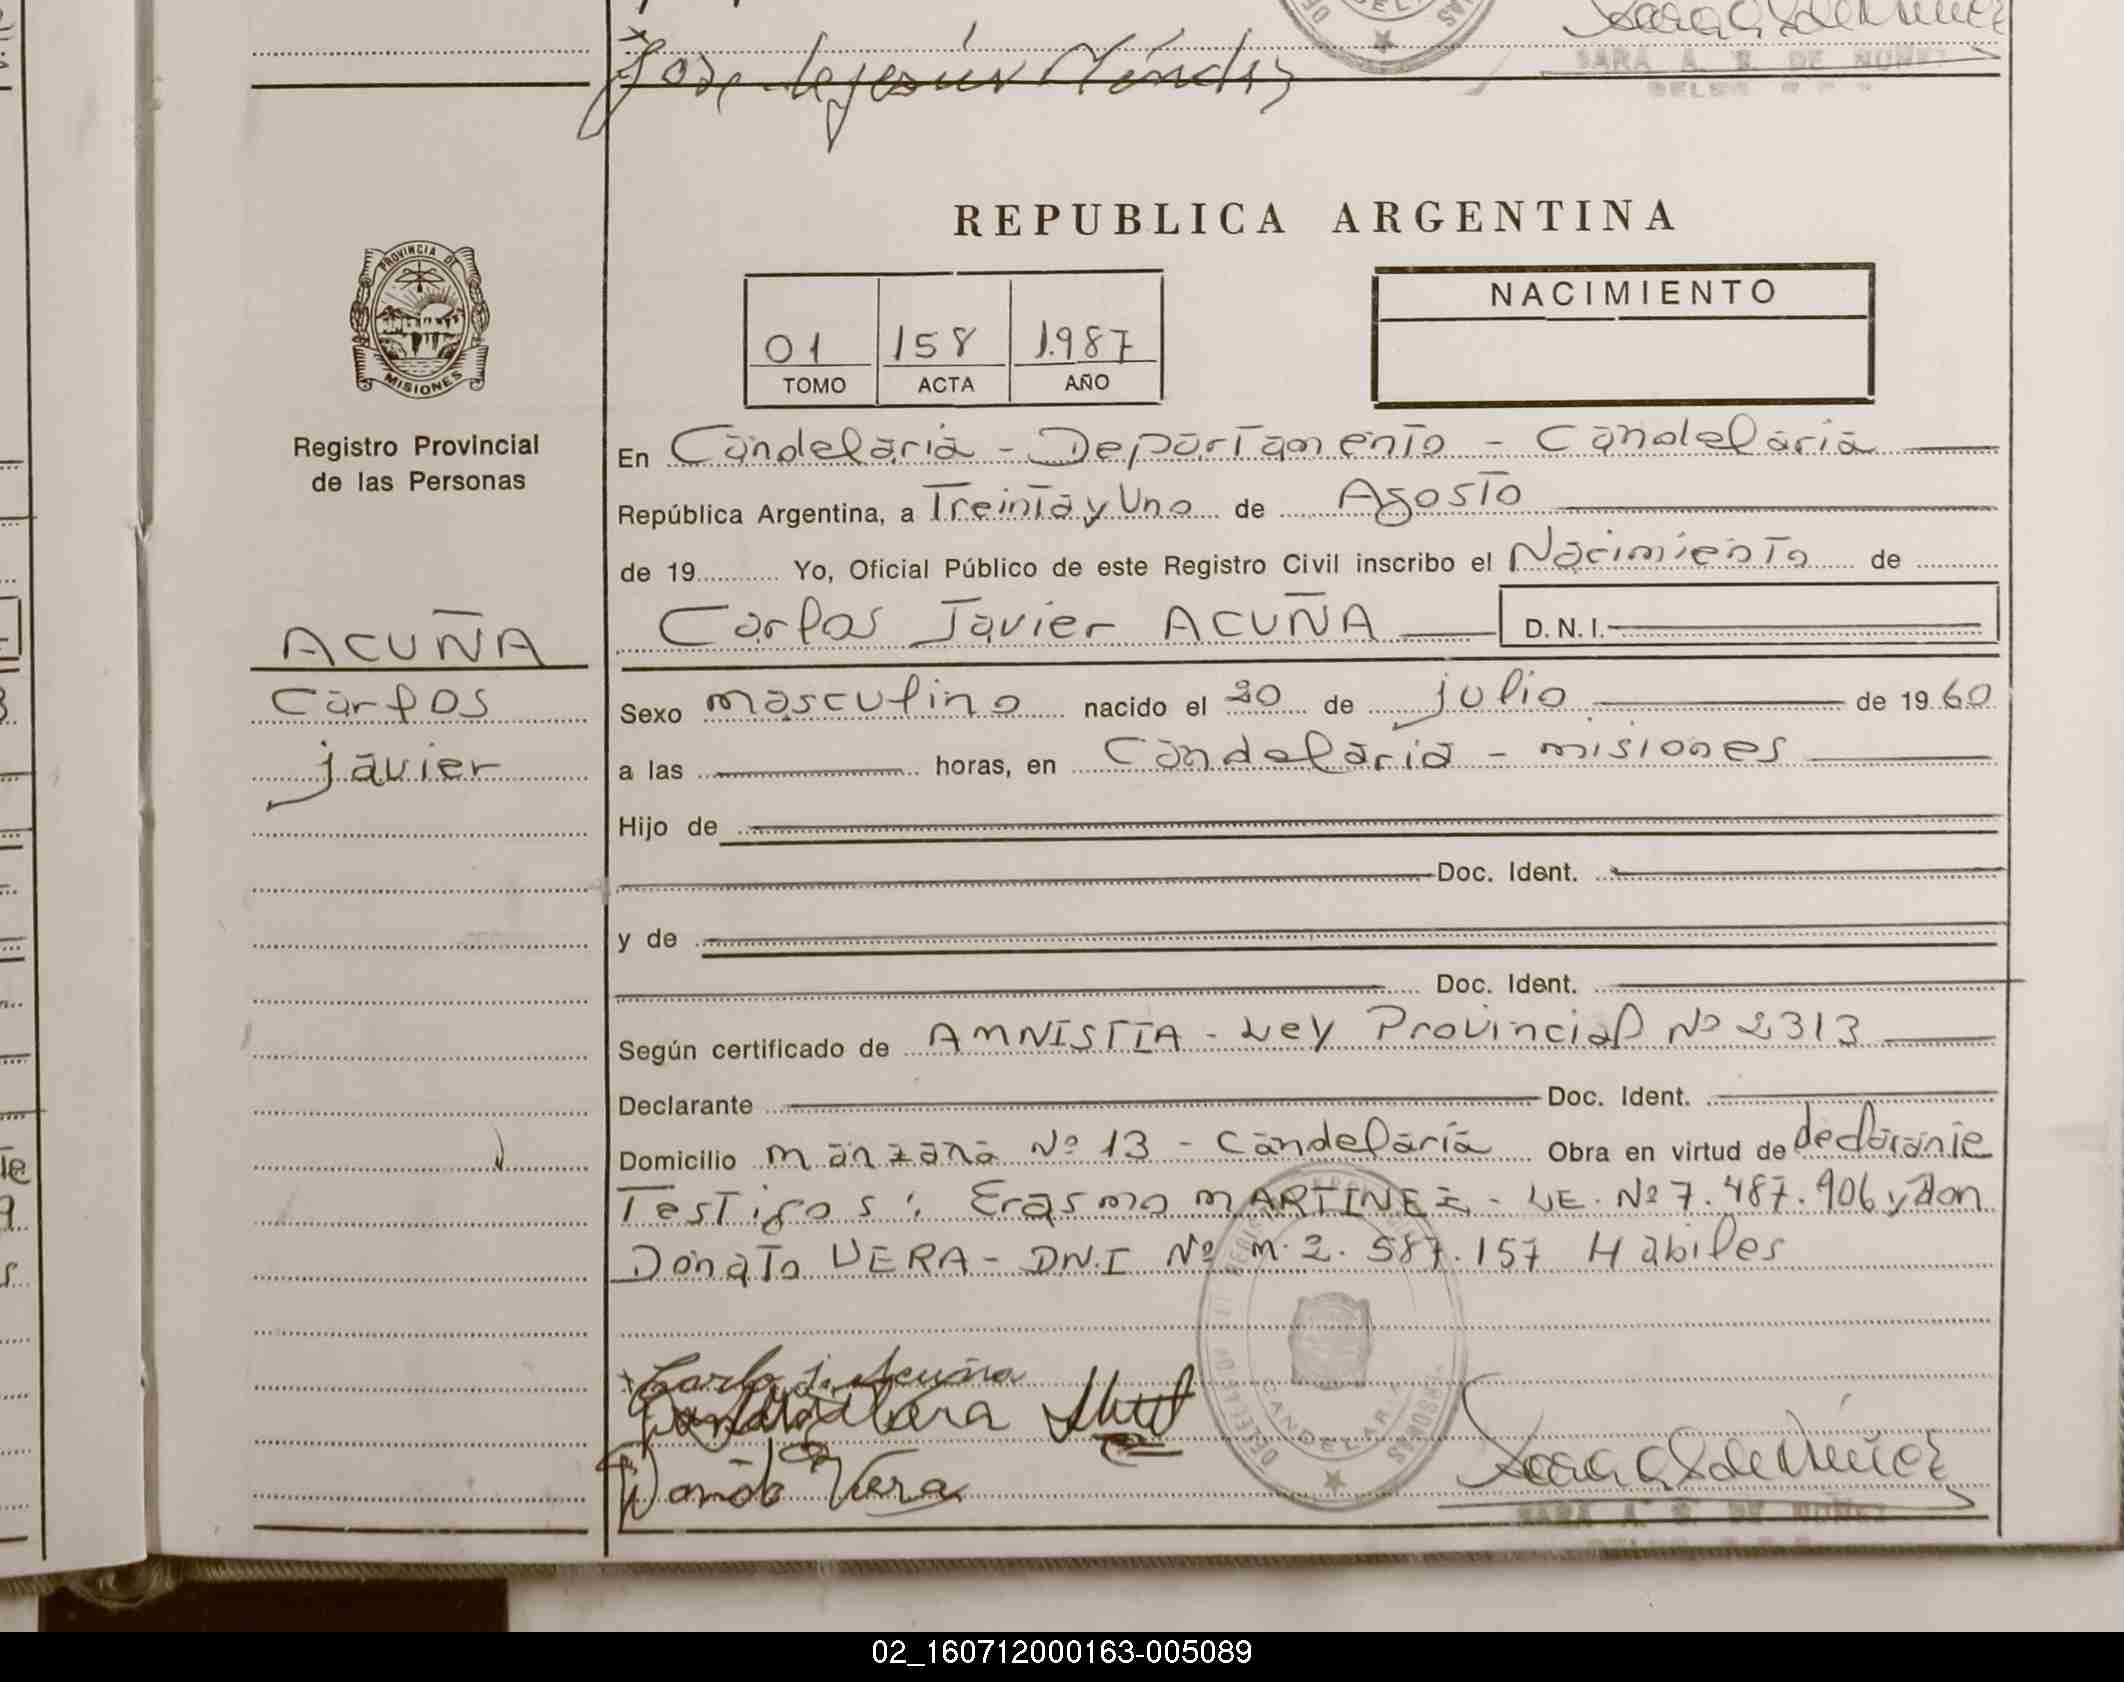 Jose
SARA A. S. DE NUÑEZ
REPUBLICA ARGENTINA
PROVINCIA DE
MISIONES
Registro Provincial
de las Personas
01 158 1.987
TOMO ACTA AÑO
NACIMIENTO
En Candelaria - Departamento - Candelaria
República Argentina, a Treinta y Uno de Agosto
de 19 Yo, Oficial Público de este Registro Civil inscribo el Nacimiento de
Carlos Javier ACUÑA D. N. I.
ACUÑA
Carlos
javier
Sexo masculino nacido el 20 de julio de 19 60
a las horas, en Candelaria - misiones
Hijo de
Doc. Ident.
y de
Doc. Ident.
Según certificado de AMNISTIA - Ley Provincial Nº 2313
Declarante Doc. Ident.
Domicilio manzana Nº 13 - Candelaria Obra en virtud de declarante
Testigos: Erasmo MARTINEZ - LE. Nº 7.487.906 y don
Donato VERA - DN.I Nº m. 2. 587.157 Habiles
CANDELARIA
Carlos J. Acuña
Donato Vera
SARA A. S. DE NUÑEZ
02_160712000163-005089